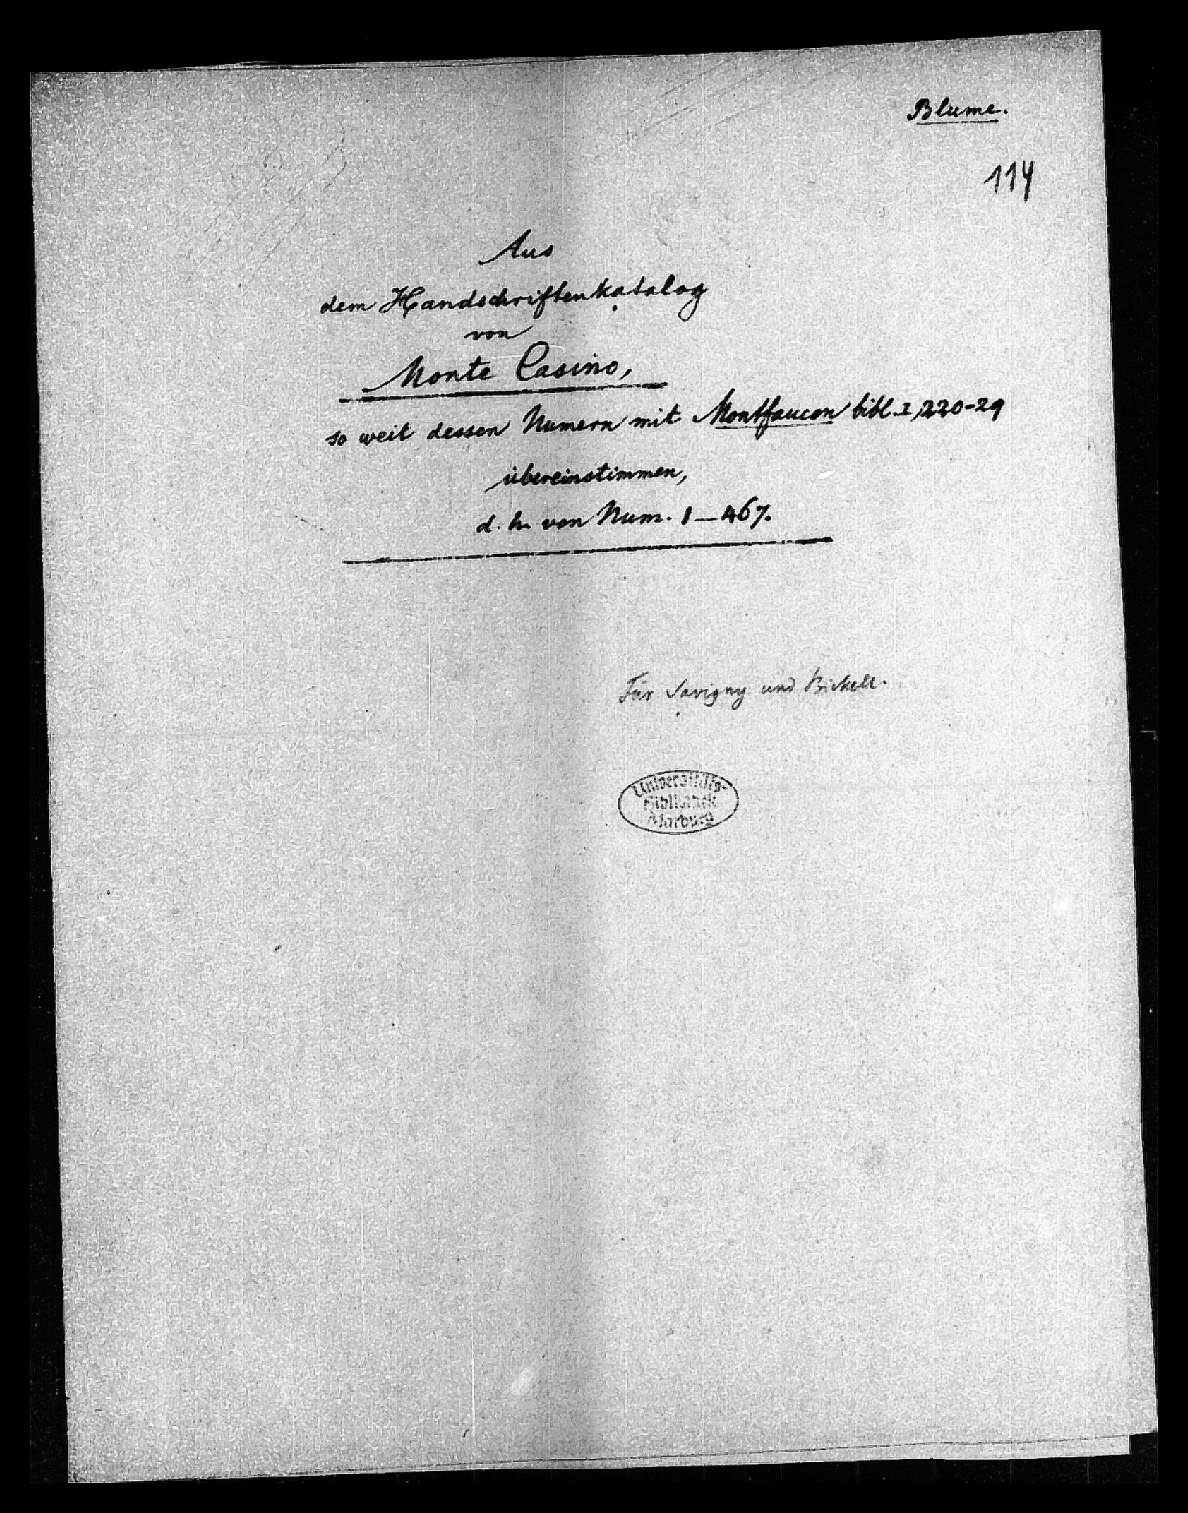 Blume.
114
Aus
dem Handschriftenkatalog
von
Monte Casino,
so weit dessen Numern mit Montfaucon bibl. I, 220-29
übereinstimmen,
d. h. von Num. 1–467.
Für Savigny und Bickell.
Universitäts-
Bibliothek
Marburg